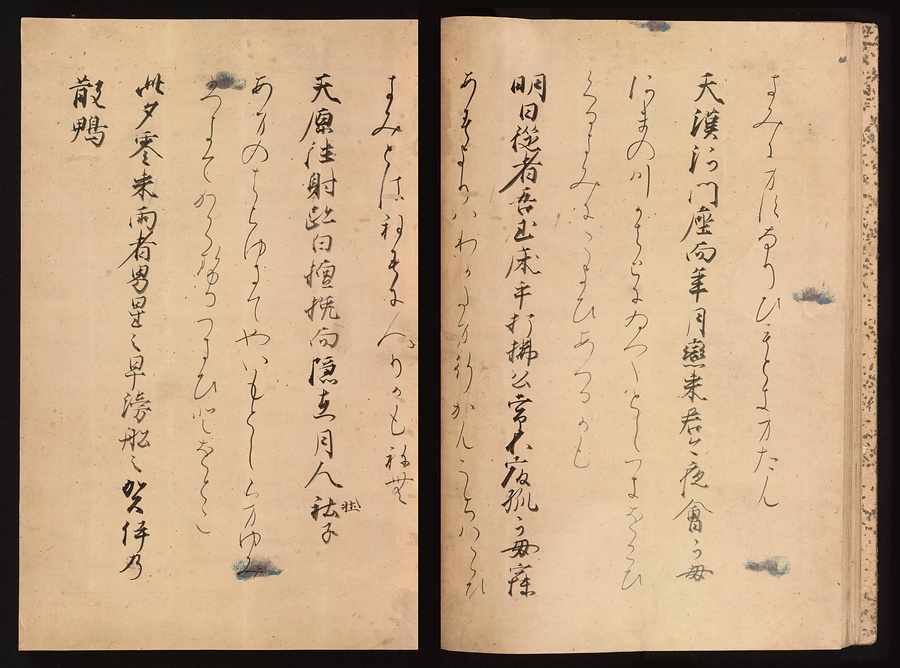 きみきますなりひもときまたん
天漢河門座而年月戀来君今夜會可母
あまの川かはとにゐつゝとしつきをこひ
くるきみにこよひあへるかも
明日従者吾玉床乎打拂公常不宿孤可母寐
あすよりはわかたまゆかんうちはらひ
きみとはねすて人りかも祢无
天原往射跡白檀挽而隠在月人壮子
あまのはらゆきてやいるとしらまゆみ
ひきてかくせるつきひとをとこ
此夕零来雨者男星之早滂船之賀伊乃
散鴨